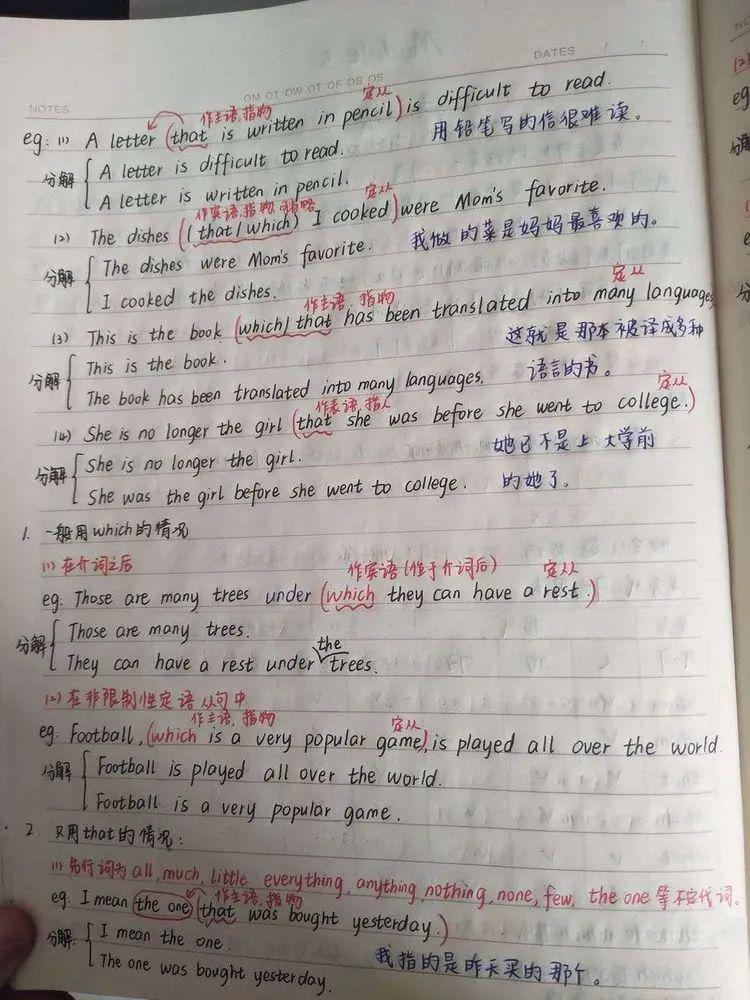 NOTES
OM OT OW OT OF OS OS
DATES / /
作主语,指物 定从
eg: (1) A letter (that is written in pencil) is difficult to read.
用铅笔写的信很难读。
分解 { A letter is difficult to read.
A letter is written in pencil.
作宾语,指物,可省略 定从
(2) The dishes ((that/which) I cooked) were Mom's favorite.
我做的菜是妈妈最喜欢的。
分解 { The dishes were Mom's favorite.
I cooked the dishes.
作主语,指物 定从
(3) This is the book (which/that has been translated into many languages.
这就是那本被译成多种
语言的书。
分解 { This is the book.
The book has been translated into many languages.
作表语,指人 定从
(4) She is no longer the girl (that she was before she went to college.)
她已不是上大学前
的她了。
分解 { She is no longer the girl.
She was the girl before she went to college.
1. 一般用which的情况
(1) 在介词之后
作宾语(位于介词后) 定从
eg: Those are many trees under (which they can have a rest.)
分解 { Those are many trees.
They can have a rest under the trees.
(2) 在非限制性定语从句中
作主语,指物 定从
eg: Football, (which is a very popular game), is played all over the world.
分解 { Football is played all over the world.
Football is a very popular game.
2. 只用that的情况:
(1) 先行词为all, much, little, everything, anything, nothing, none, few, the one等不定代词。
作主语,指物
eg: I mean the one (that was bought yesterday.)
分解 { I mean the one.
The one was bought yesterday.
我指的是昨天买的那个。